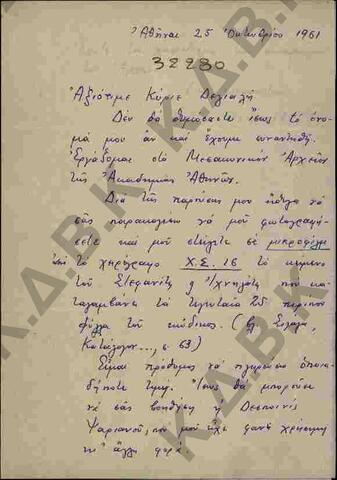 Ἀθῆναι 25 Ὀκτωβρίου 1961
32280
Ἀξιότιμε Κύριε Δελιαλῆ
Δέν θά θυμόσαστε ἴσως τό ὄνο-
μά μου ἄν καί ἔχουμε συναντηθῆ.
Ἐργάζομαι στό Μεσαιωνικόν Ἀρχεῖον
τῆς Ἀκαδημίας Ἀθηνῶν.
Διά τῆς παρούσης μου ἤθελα νά
σᾶς παρακαλέσω νά μοῦ φωτογραφή-
σετε καί μοῦ στείλετε σέ μικροφίλμ
ἀπό τό χειρόγραφο Χ.Σ. 16 τό κείμενο
τοῦ Στεφανίτη καί Ἰχνηλάτη πού κα-
ταλαμβάνει τά τελευταῖα 25 περίπου
φύλλα τοῦ κώδικος. (βλ. Σιγάλα,
Κατάλογον..., σ. 63)
Εἶμαι πρόθυμος νά πληρώσω ὁποια-
δήποτε τιμή. Ἴσως θά μποροῦσε
νά σᾶς βοηθήση ἡ Δεσποινίς
Ψαριανοῦ, πού μοῦ ἔχει φανῆ χρήσιμη
κι' ἄλλη φορά.
Κ.Δ.Β.Κ